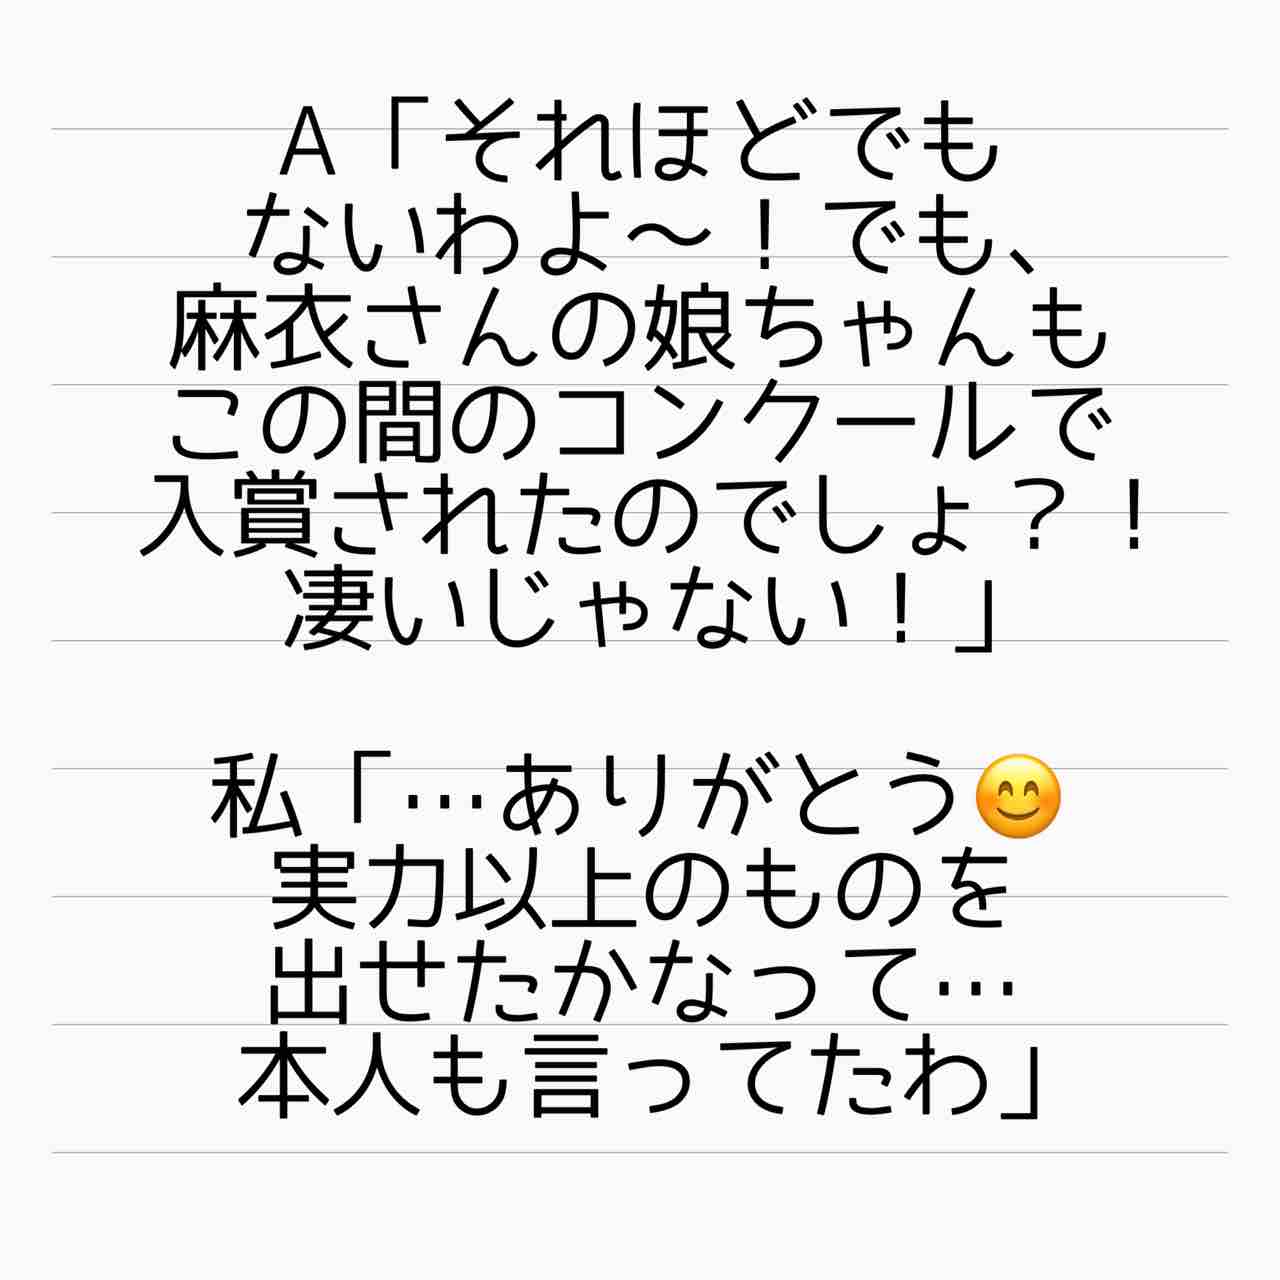 A「それほどでも
ないわよ〜！でも、
麻衣さんの娘ちゃんも
この間のコンクールで
入賞されたのでしょ？！
凄いじゃない！」
私「…ありがとう😊
実力以上のものを
出せたかなって…
本人も言ってたわ」